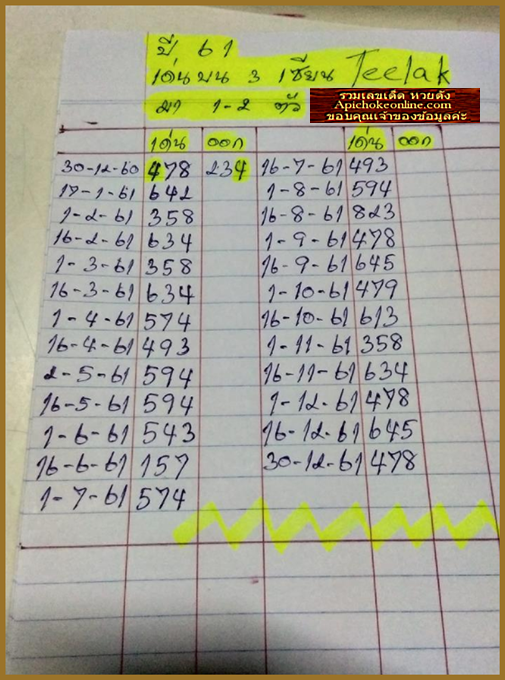 ปี 61
เด่นบน 3 เซียน Teelak
มา 1-2 ตัว
รวมเลขเด็ด หวยดัง
Apichokeonline.com
ขอบคุณเจ้าของข้อมูลค่ะ
เด่น ออก เด่น ออก
30-12-60 478 234 16-7-61 493
17-1-61 642 1-8-61 594
1-2-61 358 16-8-61 823
16-2-61 634 1-9-61 478
1-3-61 358 16-9-61 645
16-3-61 634 1-10-61 479
1-4-61 574 16-10-61 613
16-4-61 493 1-11-61 358
2-5-61 594 16-11-61 634
16-5-61 594 1-12-61 478
1-6-61 543 16-12-61 645
16-6-61 157 30-12-61 478
1-7-61 574